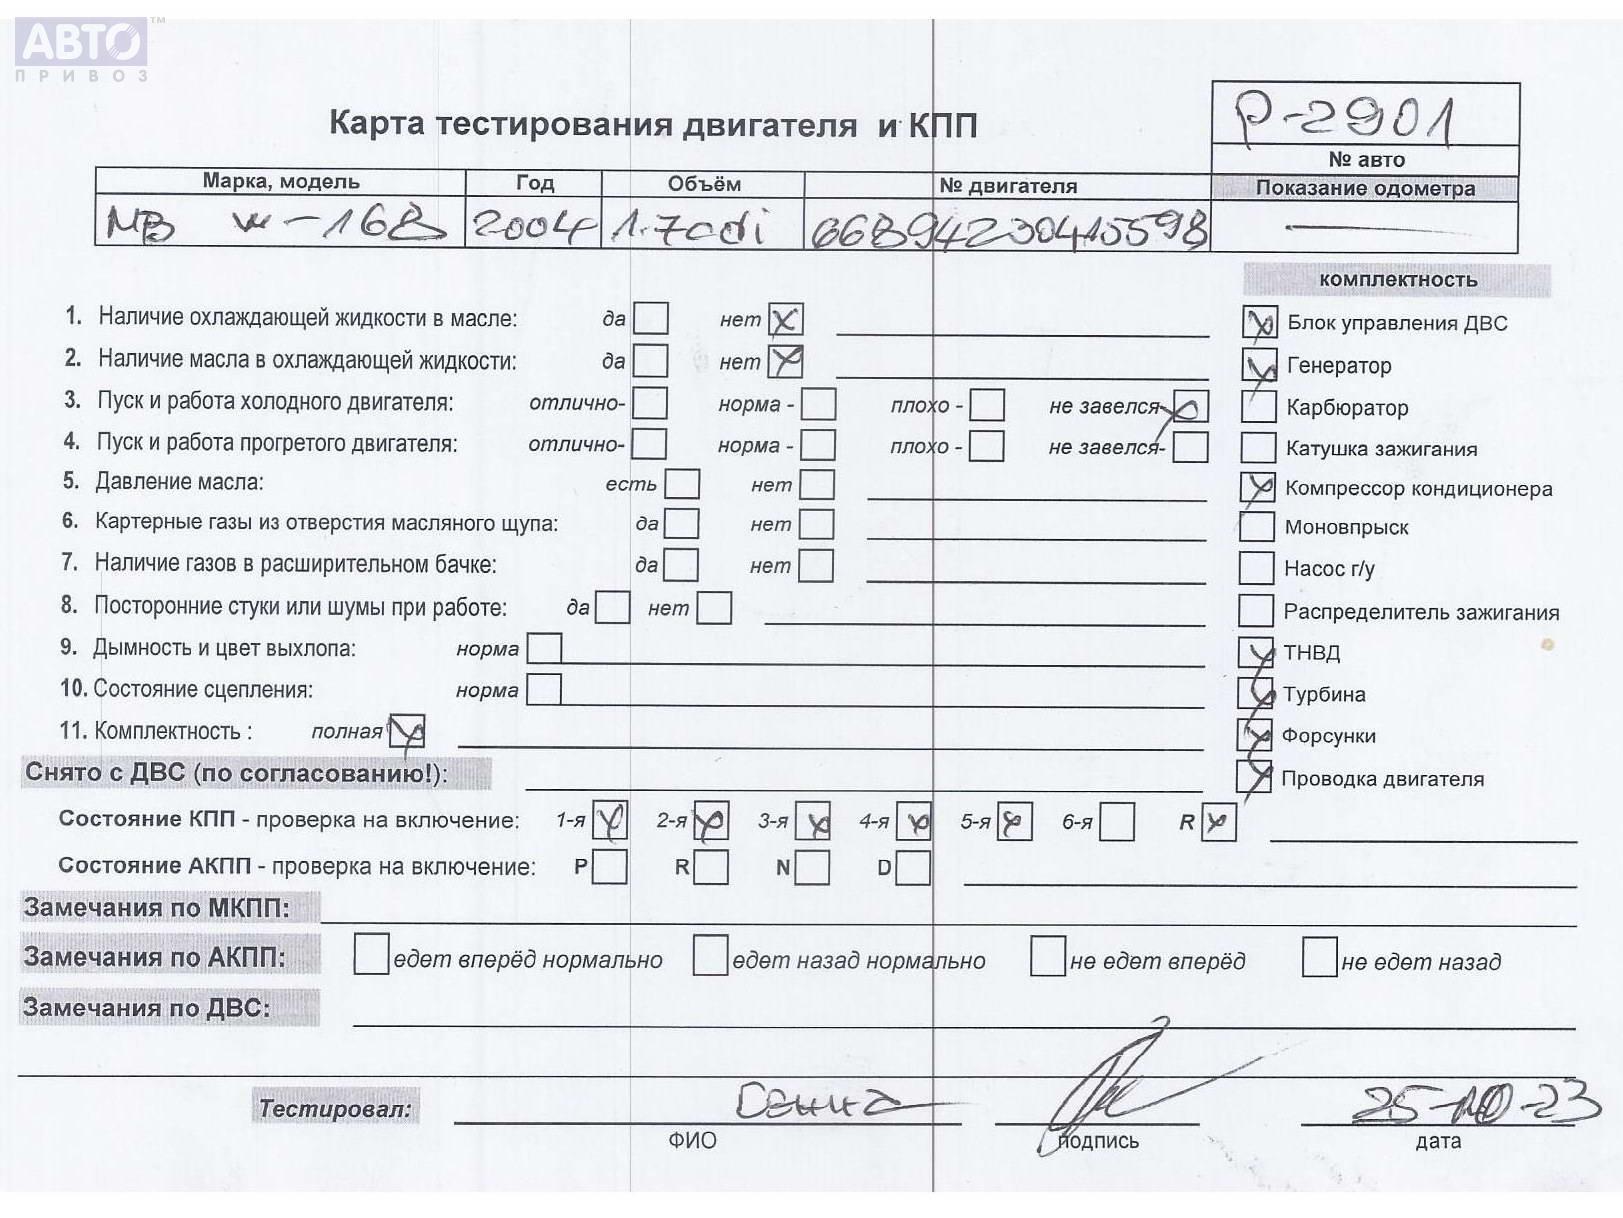 АВТО™
ПРИВОЗ
Карта тестирования двигателя и КПП
P-2901
№ авто
Марка, модель Год Объём № двигателя Показание одометра
MB w-168 2004 1.7cdi 668942304105598 —
комплектность
1. Наличие охлаждающей жидкости в масле: да нет X
Блок управления ДВС X
2. Наличие масла в охлаждающей жидкости: да нет X
Генератор X
3. Пуск и работа холодного двигателя: отлично- норма - плохо - не завелся- X
Карбюратор
4. Пуск и работа прогретого двигателя: отлично- норма - плохо - не завелся-
Катушка зажигания
5. Давление масла: есть нет
Компрессор кондиционера X
6. Картерные газы из отверстия масляного щупа: да нет
Моновпрыск
7. Наличие газов в расширительном бачке: да нет
Насос г/у
8. Посторонние стуки или шумы при работе: да нет
Распределитель зажигания
9. Дымность и цвет выхлопа: норма
ТНВД X
10. Состояние сцепления: норма
Турбина X
11. Комплектность : полная X
Форсунки X
Снято с ДВС (по согласованию!):
Проводка двигателя X
Состояние КПП - проверка на включение: 1-я X 2-я X 3-я X 4-я X 5-я X 6-я R X
Состояние АКПП - проверка на включение: P R N D
Замечания по МКПП:
Замечания по АКПП: едет вперёд нормально едет назад нормально не едет вперёд не едет назад
Замечания по ДВС:
Тестировал: 25-10-23
ФИО подпись дата